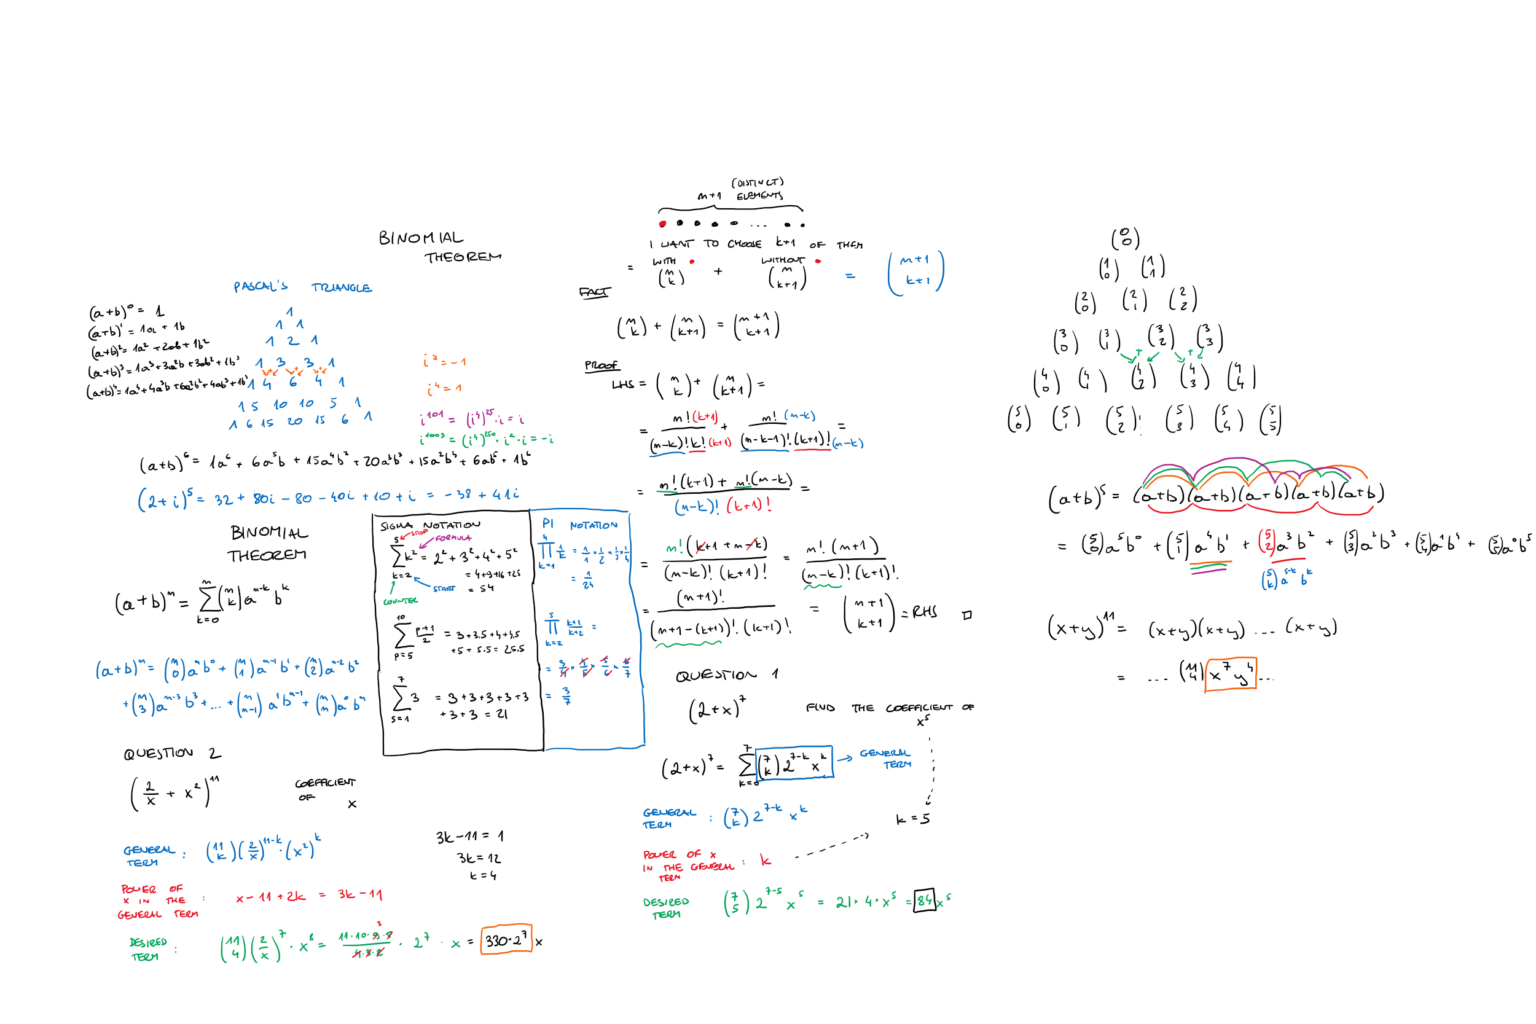 BINOMIAL
THEOREM
PASCAL'S TRIANGLE
(a+b)⁰ = 1
(a+b)¹ = 1a + 1b
(a+b)² = 1a² + 2ab + 1b²
(a+b)³ = 1a³ + 3a²b + 3ab² + 1b³
(a+b)⁴ = 1a⁴ + 4a³b + 6a²b² + 4ab³ + 1b⁴
1
1 1
1 2 1
1 3 3 1
1 4 6 4 1
1 5 10 10 5 1
1 6 15 20 15 6 1
i² = -1
i⁴ = 1
i¹⁰¹ = (i⁴)²⁵ · i = i
i¹⁰⁰³ = (i⁴)²⁵⁰ · i² · i = -i
(a+b)⁶ = 1a⁶ + 6a⁵b + 15a⁴b² + 20a³b³ + 15a²b⁴ + 6ab⁵ + 1b⁶
(2+i)⁵ = 32 + 80i - 80 - 40i + 10 + i = -38 + 41i
BINOMIAL
THEOREM
(a+b)ⁿ = ∑_{k=0}^{n} (n k) a^{n-k} b^k
(a+b)ⁿ = (n 0) aⁿ b⁰ + (n 1) a^{n-1} b¹ + (n 2) a^{n-2} b²
+ (n 3) a^{n-3} b³ + ... + (n n-1) a¹ b^{n-1} + (n n) a⁰ bⁿ
SIGMA NOTATION
STOP
FORMULA
∑_{k=2}^{5} k² = 2² + 3² + 4² + 5²
= 4+9+16+25
= 54
START
COUNTER
∑_{p=5}^{10} (p+1)/2 = 3 + 3.5 + 4 + 4.5
+ 5 + 5.5 = 25.5
∑_{s=1}^{7} 3 = 3+3+3+3+3
+3+3 = 21
PI NOTATION
∏_{k=1}^{4} 1/k = 1/1 · 1/2 · 1/3 · 1/4
= 1/24
∏_{k=2}^{5} (k+1)/(k+2) =
= 3/4 · 4/5 · 5/6 · 6/7
= 3/7
QUESTION 2
(2/x + x²)¹¹
COEFFICIENT
OF x
GENERAL
TERM : (11 k) (2/x)^{11-k} · (x²)^k
3k - 11 = 1
3k = 12
k = 4
POWER OF
X IN THE : x - 11 + 2k = 3k - 11
GENERAL TERM
DESIRED
TERM : (11 4) (2/x)⁷ · x⁸ = (11·10·9·8)/(4·3·2) 3 · 2⁷ · x = 330·2⁷ x
n+1 (DISTINCT)
ELEMENTS
...
I WANT TO CHOOSE k+1 OF THEM
WITH WITHOUT
= (n k) + (n k+1) = (n+1 k+1)
FACT
(n k) + (n k+1) = (n+1 k+1)
PROOF
LHS = (n k) + (n k+1) =
= n!(k+1) / (n-k)! k! (k+1) + n! (n-k) / (n-k-1)! (k+1)! (n-k) =
= n!(k+1) + n!(n-k) / (n-k)! (k+1)! =
= n! (k+1 + n-k) / (n-k)! (k+1)! = n! (n+1) / (n-k)! (k+1)!
= (n+1)! / (n+1-(k+1))! · (k+1)! = (n+1 k+1) = RHS □
QUESTION 1
(2+x)⁷ FIND THE COEFFICIENT OF
x⁵
(2+x)⁷ = ∑_{k=0}^{7} (7 k) 2^{7-k} x^k → GENERAL
TERM
GENERAL
TERM : (7 k) 2^{7-k} x^k
k = 5
POWER OF X
IN THE GENERAL : k
TERM
DESIRED
TERM : (7 5) 2^{7-5} x⁵ = 21 · 4 · x⁵ = 84 x⁵
(0 0)
(1 0) (1 1)
(2 0) (2 1) (2 2)
(3 0) (3 1) (3 2) (3 3)
+ +
(4 0) (4 1) (4 2) (4 3) (4 4)
(5 0) (5 1) (5 2) (5 3) (5 4) (5 5)
(a+b)⁵ = (a+b)(a+b)(a+b)(a+b)(a+b)
= (5 0) a⁵ b⁰ + (5 1) a⁴ b¹ + (5 2) a³ b² + (5 3) a² b³ + (5 4) a¹ b⁴ + (5 5) a⁰ b⁵
(5 k) a^{5-k} b^k
(x+y)¹¹ = (x+y)(x+y) .... (x+y)
= ... (11 4) x⁷ y⁴ ...